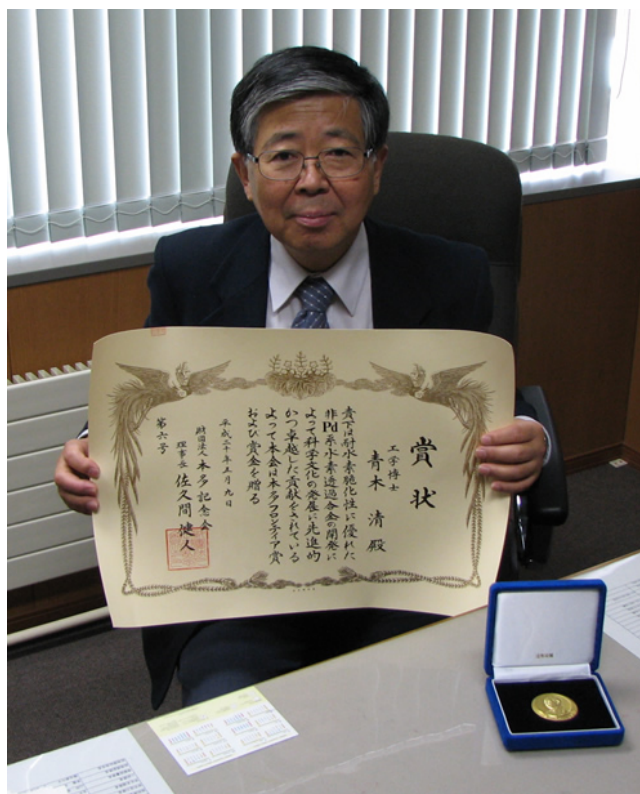 賞状
工学博士
青木清殿
貴下は耐水素脆化性に優れた
非Pd系水素透過合金の開発に
よって科学文化の発展に先進的
かつ卓越した貢献をされている
よって本会は本多フロンティア賞
および賞金を贈る
平成二十年五月九日
財団法人本多記念会
理事長佐久間健人
第六号